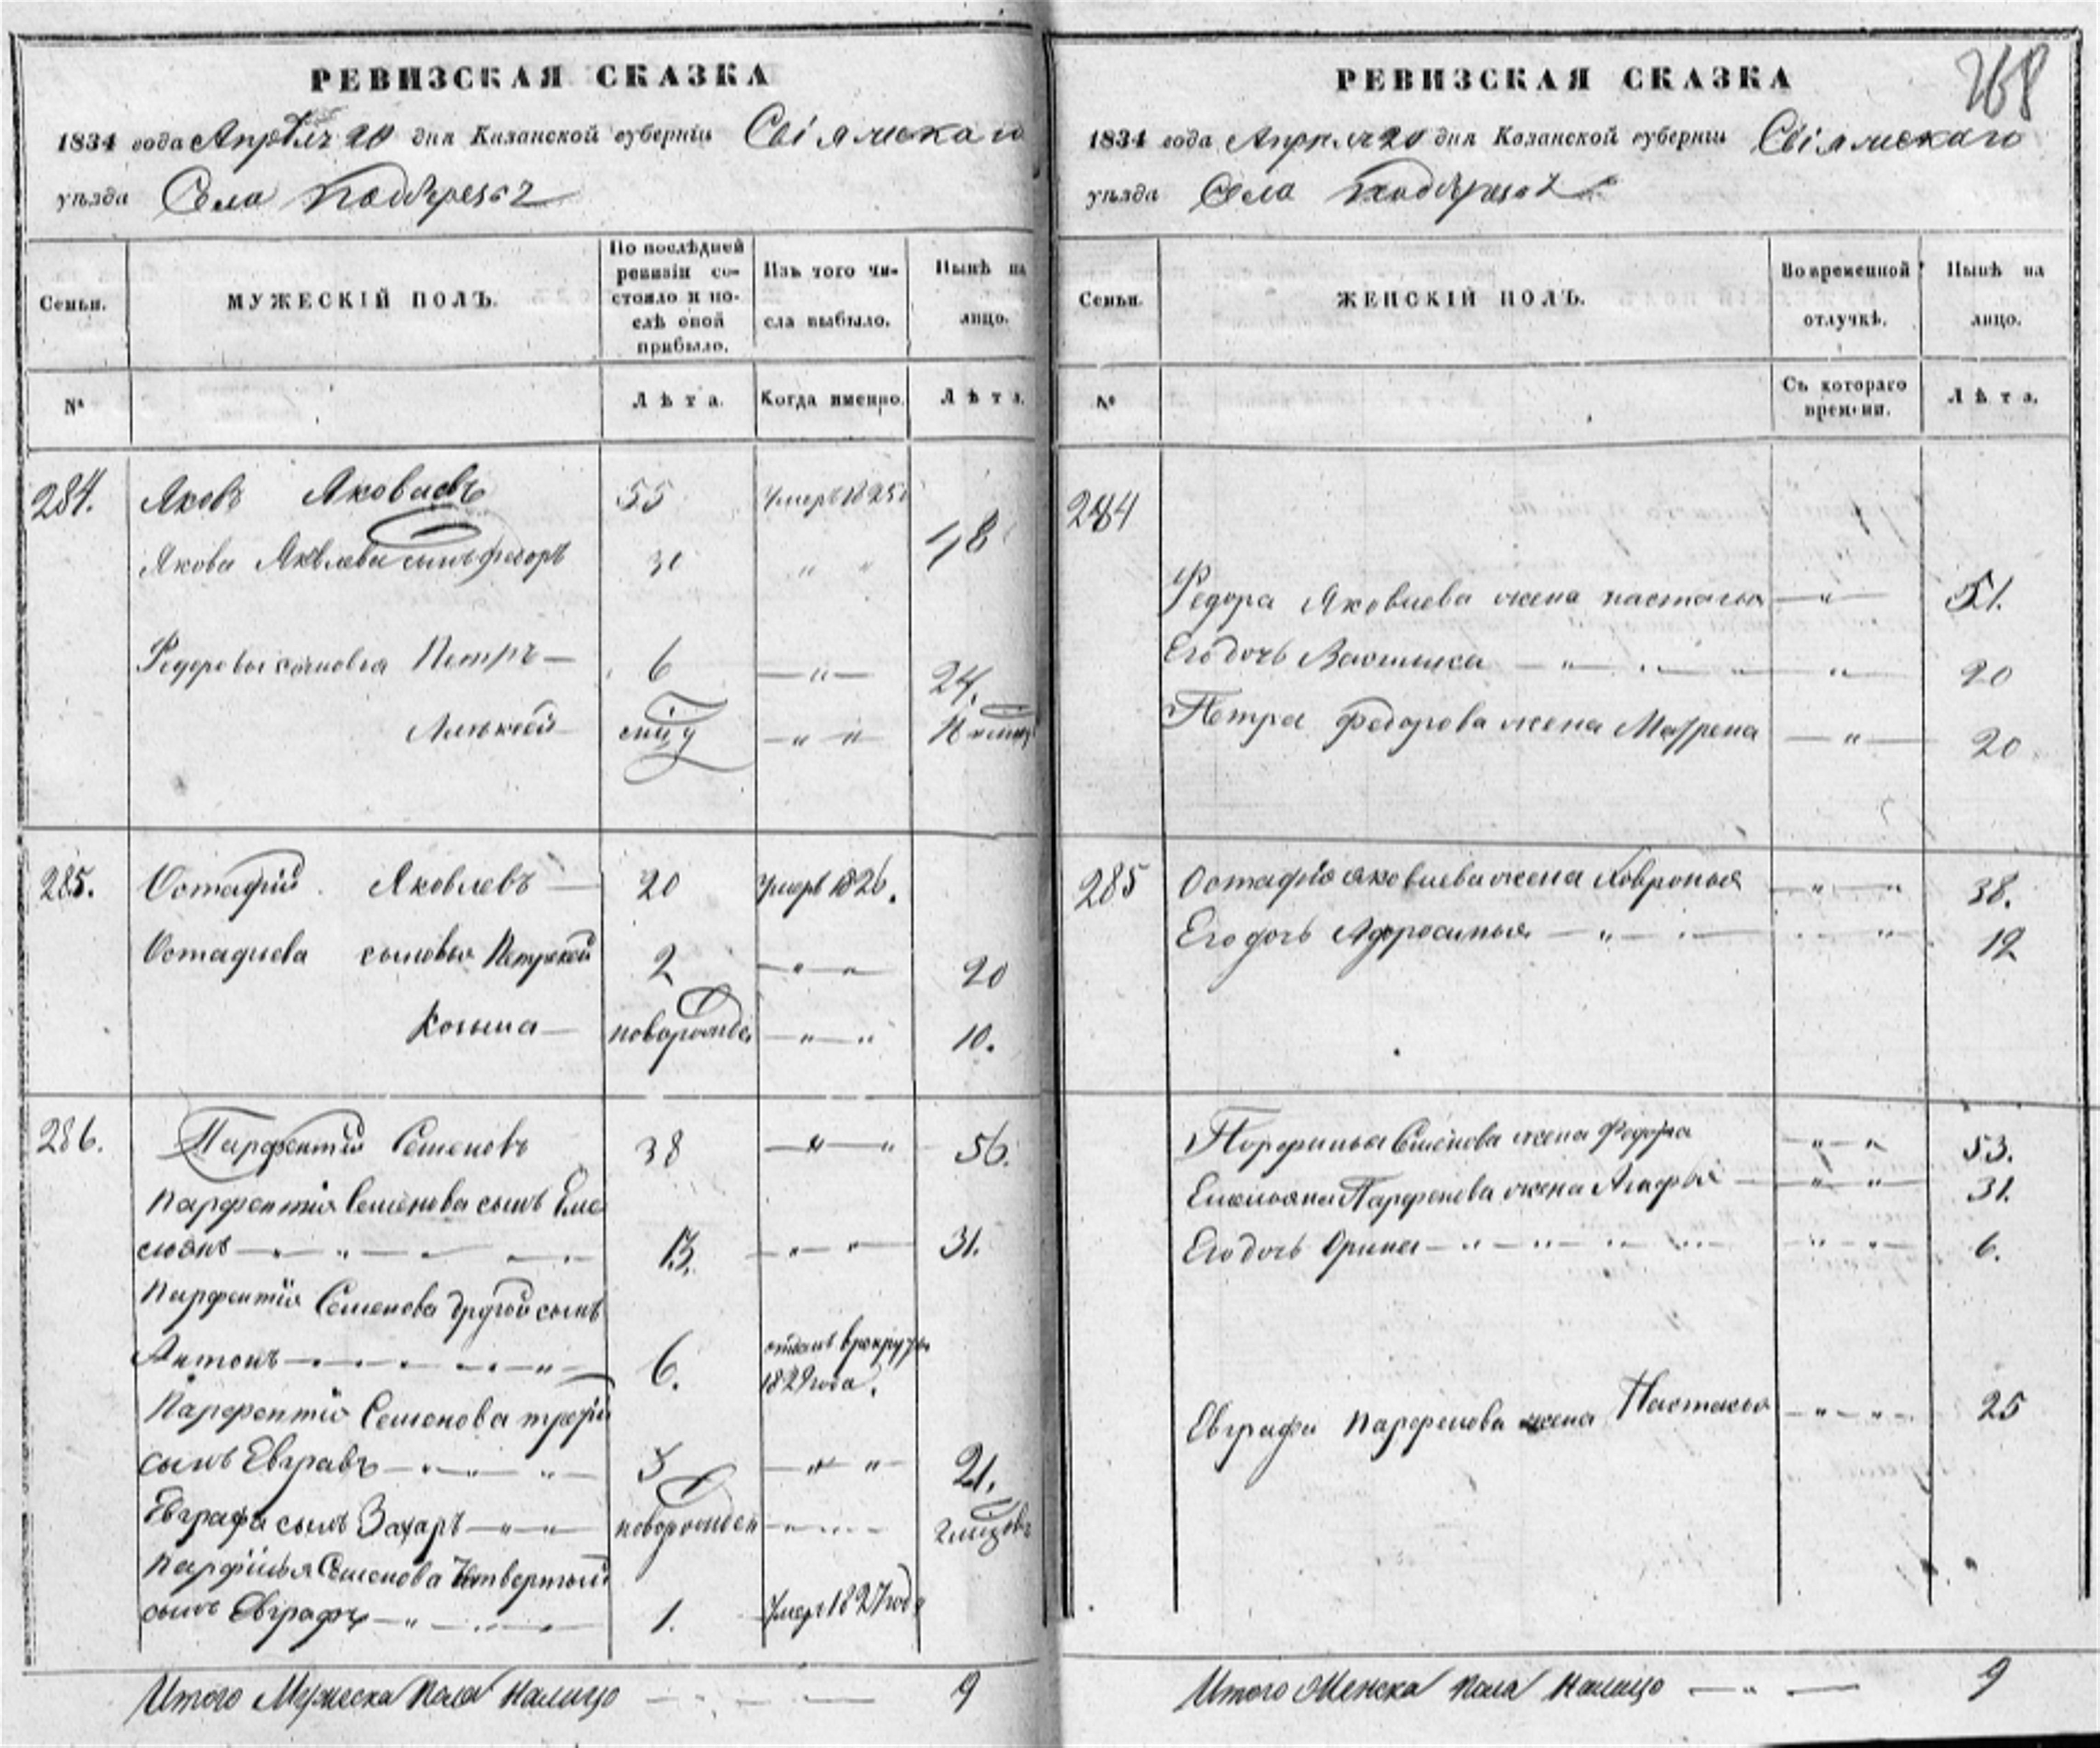 РЕВИЗСКАЯ СКАЗКА
1834 года Апрѣля 20 дня Казанской губерніи Свіяжскаго
уѣзда Села
Семьи.
МУЖЕСКІЙ ПОЛЪ.
По послѣдней ревизіи состояло и послѣ оной прибыло.
Изъ того числа выбыло.
Нынѣ на лицо.
№
Лѣта.
Когда именно.
Лѣта.
284. Яковъ Яковлевъ 55 Умеръ 1825
Якова Яковлева сынъ Федоръ 30 " " 48
Федоровы сыновья Петръ — 6 — " — 24.
Алексей — — " "
285. Остафий Яковлевъ — 20 Умеръ 1826.
Остафиева сыновья 2 — " " 20
Козьма — новорожде — " — " 10.
286. Парфентий Семеновъ 38 — " — " 56.
Парфентия Семенова сынъ Еме
льянъ — " — " — 13. — " " — 31.
Парфентия Семенова другой сынъ
Антонъ — 6. отданъ врекруты
1829 года.
Парфентия Семенова трети
сынъ Евгравъ — " — " — 3 — " " — 21.
Евграфа сынъ Захаръ — " — " новорожден — " —
Семенова Четвертый
сынъ Евграфъ — " — 1. Умеръ 1827 года
Итого Мужеска пола налицо — 9
РЕВИЗСКАЯ СКАЗКА
268
1834 года Апреля 20 дня Казанской губерніи Свіяжскаго
уѣзда Села
Семьи.
ЖЕНСКІЙ ПОЛЪ.
Во временной отлучкѣ.
Нынѣ на лицо.
№
Съ котораго времени.
Лѣта.
284
Федора Яковлева жена настасья — " — 51.
Его дочь Василиса — " — " 20
Петра Федорова жена Маврена — " — 20
285 Остафия яковлева жена Ховронья — " — " 38.
Его дочь Афросинья — " — " 12
Семенова жена Федора — " — " 53.
Емельяна Парфенова жена Агафья — " — " 31.
Его дочь Орина — " — " 6.
Евграфа Парфенова жена Настасья — " — " 25
Итого Женска пола налицо — " — 9